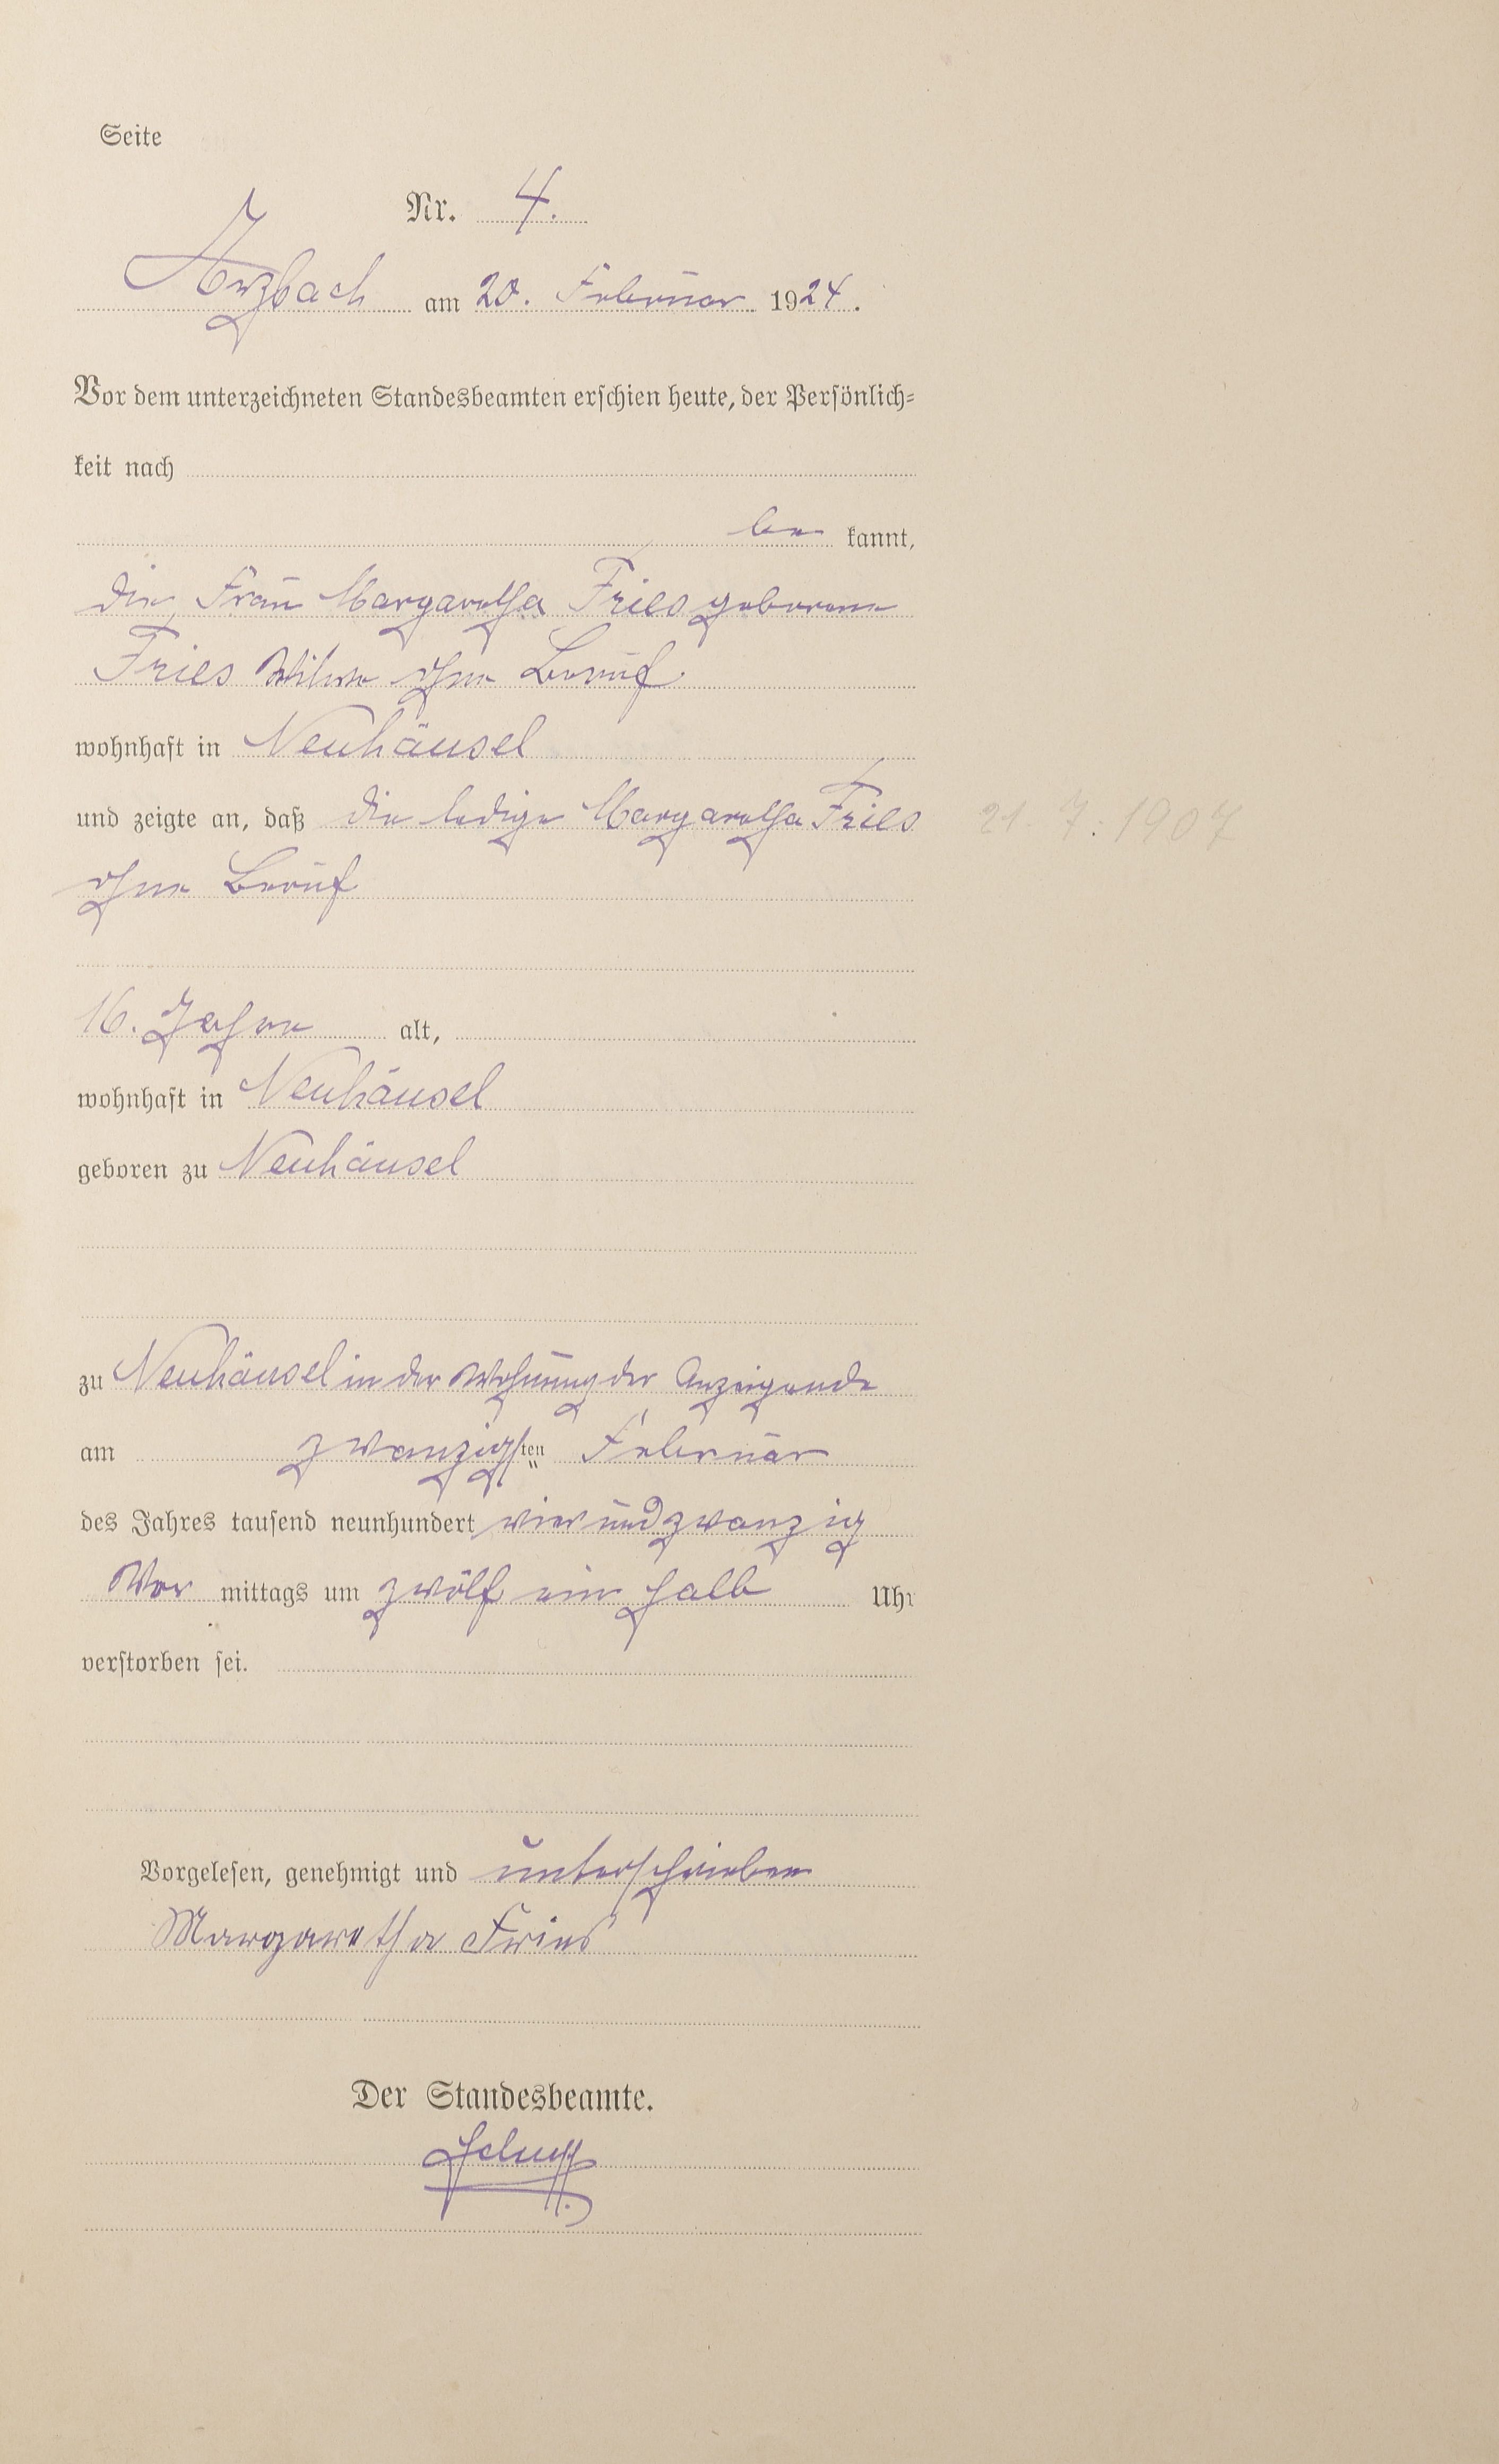 Seite
Nr. 4.
Arzbach am 20. Februar 1924.
Vor dem unterzeichneten Standesbeamten erschien heute, der Persönlich-
keit nach
be kannt,
die Frau Margaretha Fries geborene
Fries Witwe ohne Beruf
wohnhaft in Neuhäusel
und zeigte an, daß die ledige Margaretha Fries 21.7.1907
ohne Beruf
16. Jahre alt,
wohnhaft in Neuhäusel
geboren zu Neuhäusel
zu Neuhäusel in der Wohnung der Anzeigende
am zwanzigsten Februar
des Jahres tausend neunhundert vierundzwanzig
Vor mittags um zwölf ein halb Uhr
verstorben sei.
Vorgelesen, genehmigt und unterschrieben
Margaretha Fries
Der Standesbeamte.